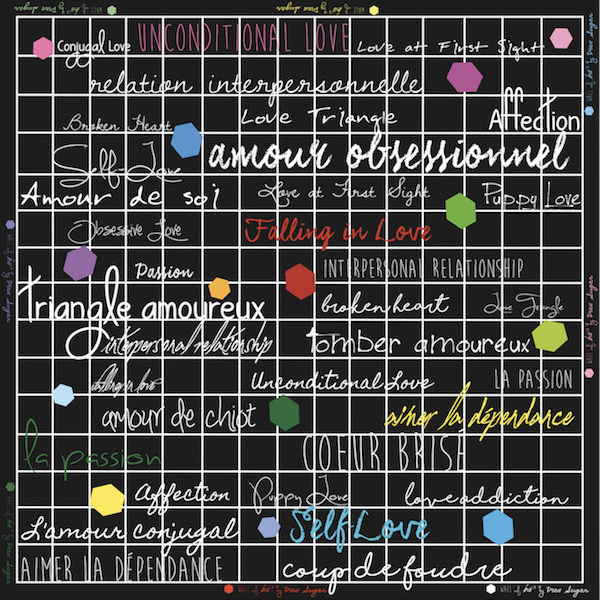 Conjugal Love UNCONDITIONAL LOVE Love at First Sight
relation interpersonnelle
Broken Heart Love Triangle Affection
Self-Love amour obsessionnel
Amour de soi Love at First Sight Puppy Love
Obsessive Love Falling in Love
Passion INTERPERSONAL RELATIONSHIP
triangle amoureux broken heart Love Triangle
interpersonal relationship Tomber amoureux
falling in love Unconditional Love LA PASSION
amour de chiot aimer la dépendance
la passion COEUR BRISÉ
Affection Puppy Love love addiction
L'amour conjugal Self-Love
AIMER LA DÉPENDANCE coup de foudre